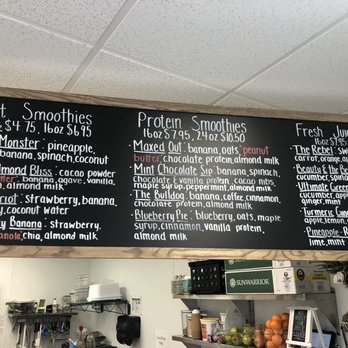 t Smoothies
$4.75, 16oz $6.95
Monster: pineapple,
banana, spinach, coconut
lmond Bliss: cacao powder
banana, agave, vanilla,
almond milk
rrot: strawberry, banana,
coconut water
y Banana: strawberry,
anola, chia, almond milk
Protein Smoothies
16oz $7.95, 24oz $10.50
Maxed Out: banana, oats, peanut
butter, chocolate protein, almond milk
Mint Chocolate Sip: banana, spinach,
chocolate & vanilla protein, cacao nibs,
maple syrup, peppermint, almond milk
The Bulldog: banana, coffee, cinnamon,
chocolate protein, almond milk
Blueberry Pie: blueberry, oats, maple
syrup, cinnamon, vanilla protein,
almond milk
Fresh Jui
16oz $7.95
The Rebel: sw
carrot, orange, a
Beauty & the Be
cucumber, spina
Ultimate Green
cucumber, app
ginger, mint
Turmeric
Pineapple-
lime, mint
SUNWARRIOR